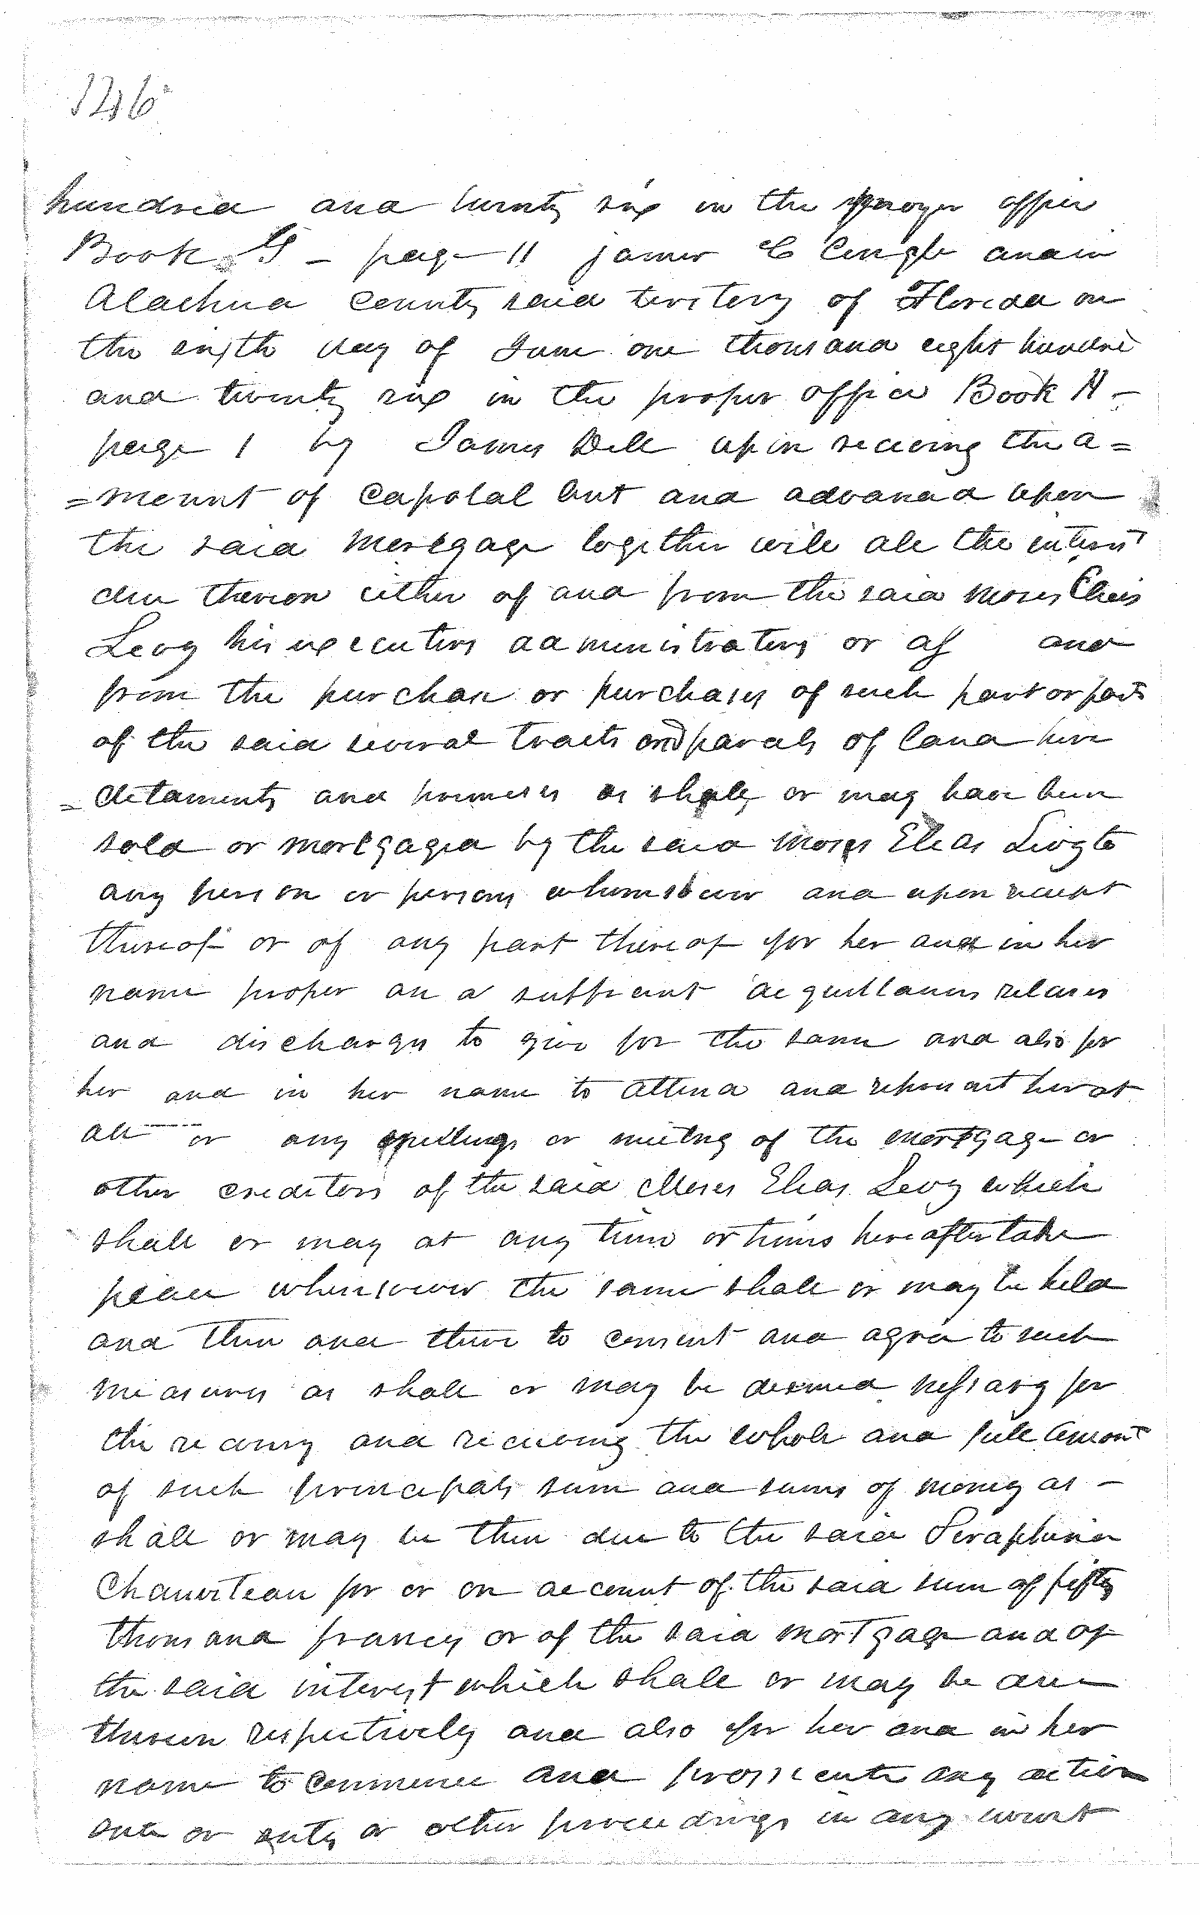 126
hundred and twenty six in the proper office
Book G - page 11 James C Cingle and in
Alachua County said teritory of Florida on
the sixth day of June one thousand eight hundre
and twenty six in the proper office Book H -
page 1 by James Dell upon recieving the a=
=mount of capotal but and advanced upon
the said mortgage together with all the interest
due thereon either of and from the said Moses Elias
Levy his executors administrators or as and
from the purchase or purchases of such part or parts
of the said several tracts and parcels of land here
=detaments and premises as shall or may have been
sold or mortgaged by the said Moses Elias Levy to
any person or persons whomsoever and upon receipt
thereof or of any part thereof for her and in her
name proper and sufficient acquittances releases
and discharges to give for the same and also for
her and in her name to attend and represent her at
all or any meeting of the mortgage or
other creditors of the said Moses Elias Levy which
shall or may at any time or times hereafter take
place whensoever the same shall or may be held
and then and there to consent and agree to such
measures as shall or may be deemed nessary for
the recovery and recieving the whole and full amount
of such principals sum and sums of money as -
shall or may be then due to the said Seraphina
Chauviteau for or on account of the said sum of fifty
thousand francs or of the said mortgage and of
the said interest which shall or may be due
thereon respectively and also for her and in her
name to commence and prossecute any action
suit or suits or other proceedings in any court